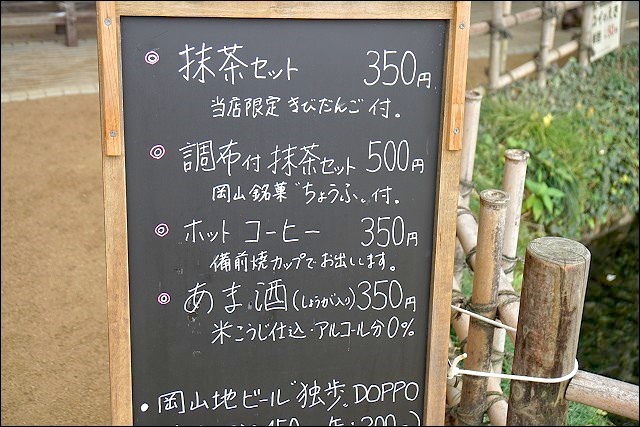 ◎ 抹茶セット 350円
当店限定 きびだんご 付。
◎ 調布付 抹茶セット 500円
岡山銘菓"ちょうふ"付。
◎ ホット コーヒー 350円
備前焼カップで お出しします。
◎ あま酒(しょうが入り) 350円
米こうじ仕込・アルコール分0%
• 岡山地ビール"独歩"DOPPO